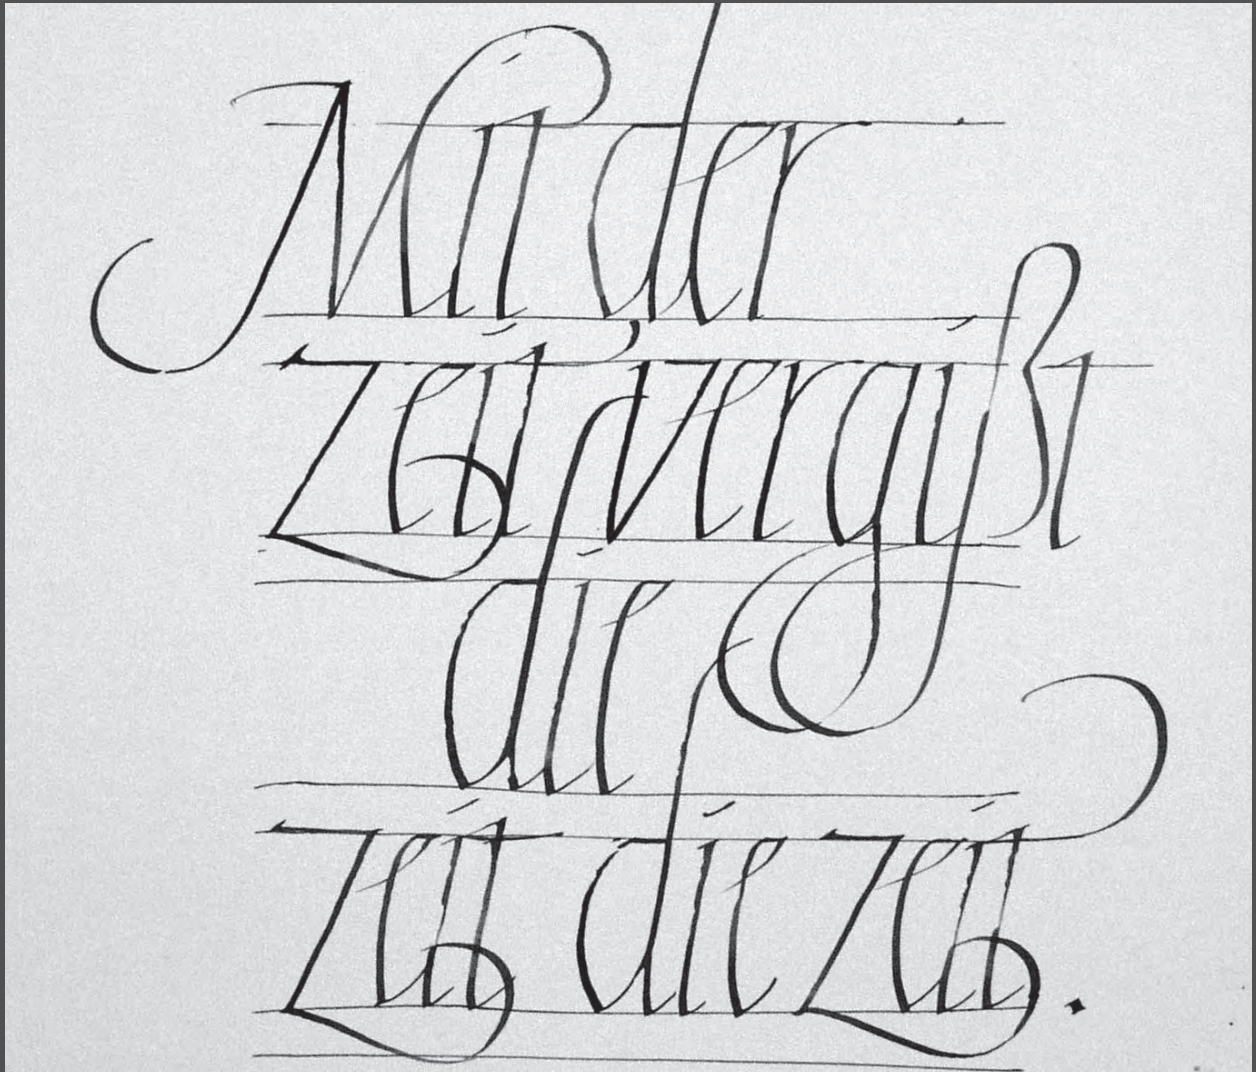 Mit der
zeit vergißt
die
zeit die zeit.